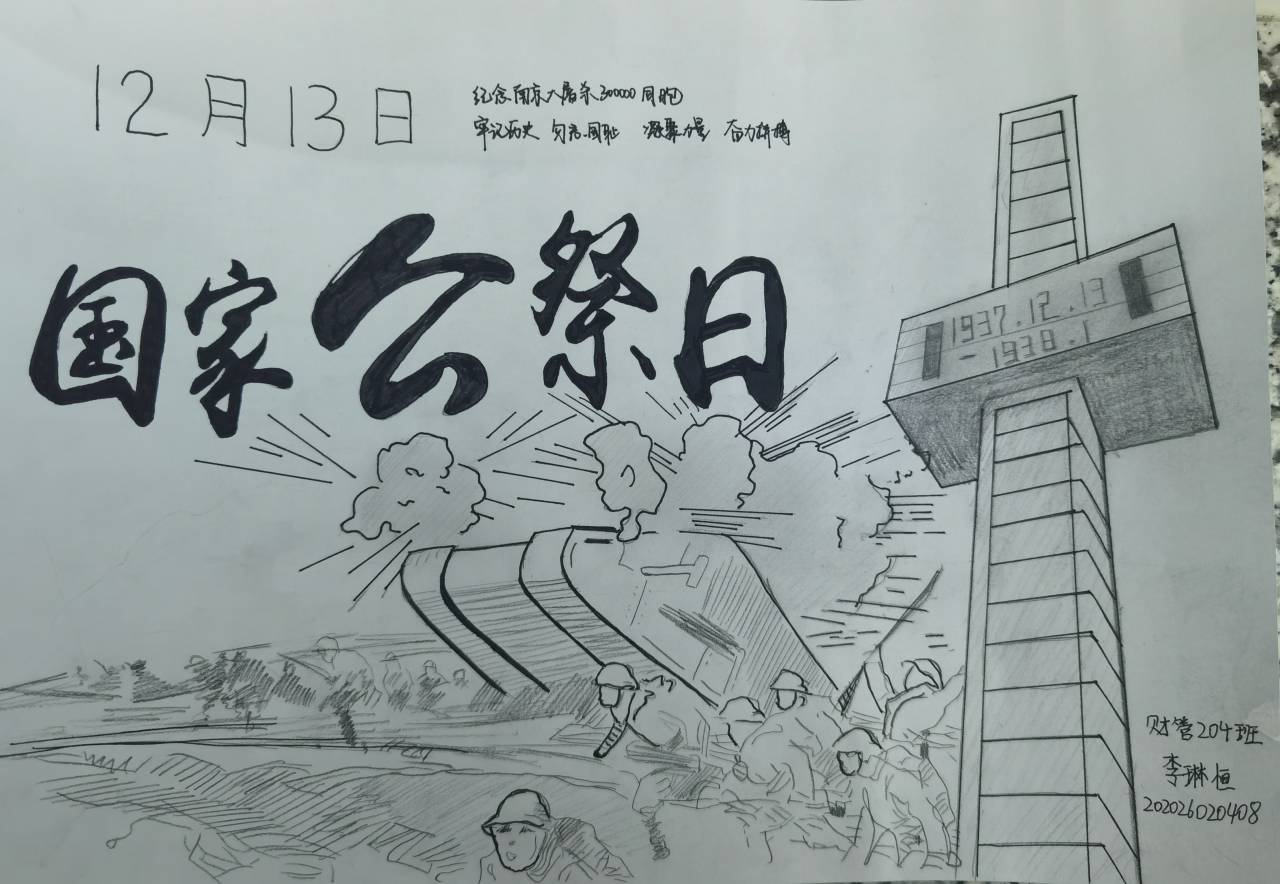 12月13日
纪念南京大屠杀300000同胞
牢记历史 勿忘国耻 凝聚力量 奋力拼搏
国家公祭日
1937.12.13
-1938.1
财管204班
李琳恒
202026020408